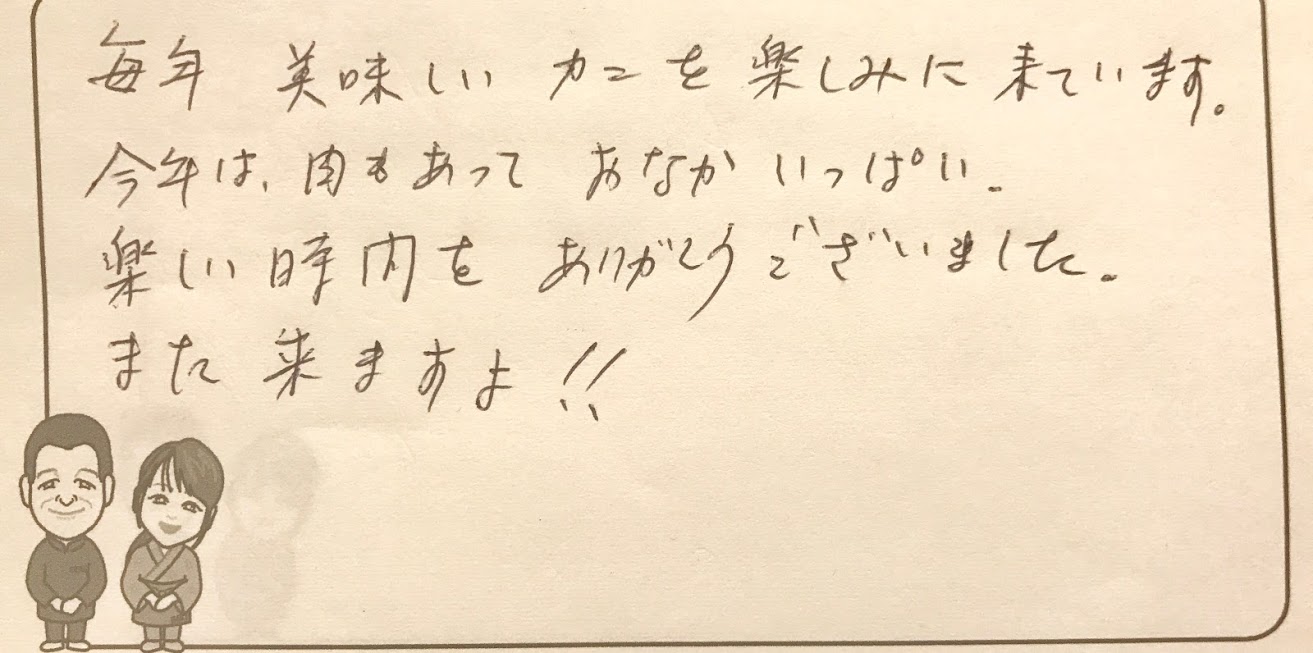 毎年 美味しい カニを楽しみに来ています。
今年は、肉もあって おなか いっぱい。
楽しい時内を ありがとうございました。
また来ますよ!!